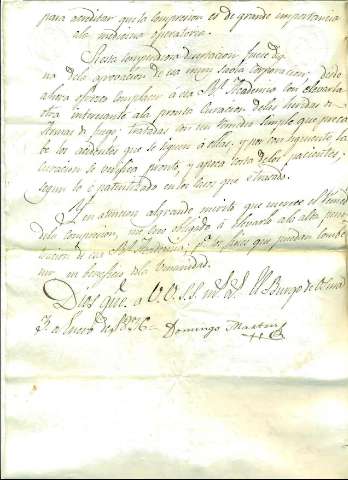 para acreditar que la compresion es de grande importancia
ala medicina operatoria.
Si esta compendiosa disertacion fuese dig
na dela aprovacion de una tan sabia corporacion; desde
ahora ofrezco complacer a esta Rl. Academia con elevarla
otra interesante ala pronta curacion delas heridas de
Armas de fuego; tratadas con un metodo simple que preca
be los accidentes que se siguen á ellas; y por consiguiente la
curacion se verifica pronto, y apoca costa delos pacientes,
segun lo é patentizado en los casos que é tratado.
Y en atencion algrande merito que merece el
dela compresion, me creo obligado á elevarlo ala alta
de esa Rl. Academia; Por los fines que puedan combe
nir en beneficio dela Umanidad.
Dios gue. a V.V.S.S. ms. as. El Burgo de Osma
3 de Enero de 1836 = Domingo Martin